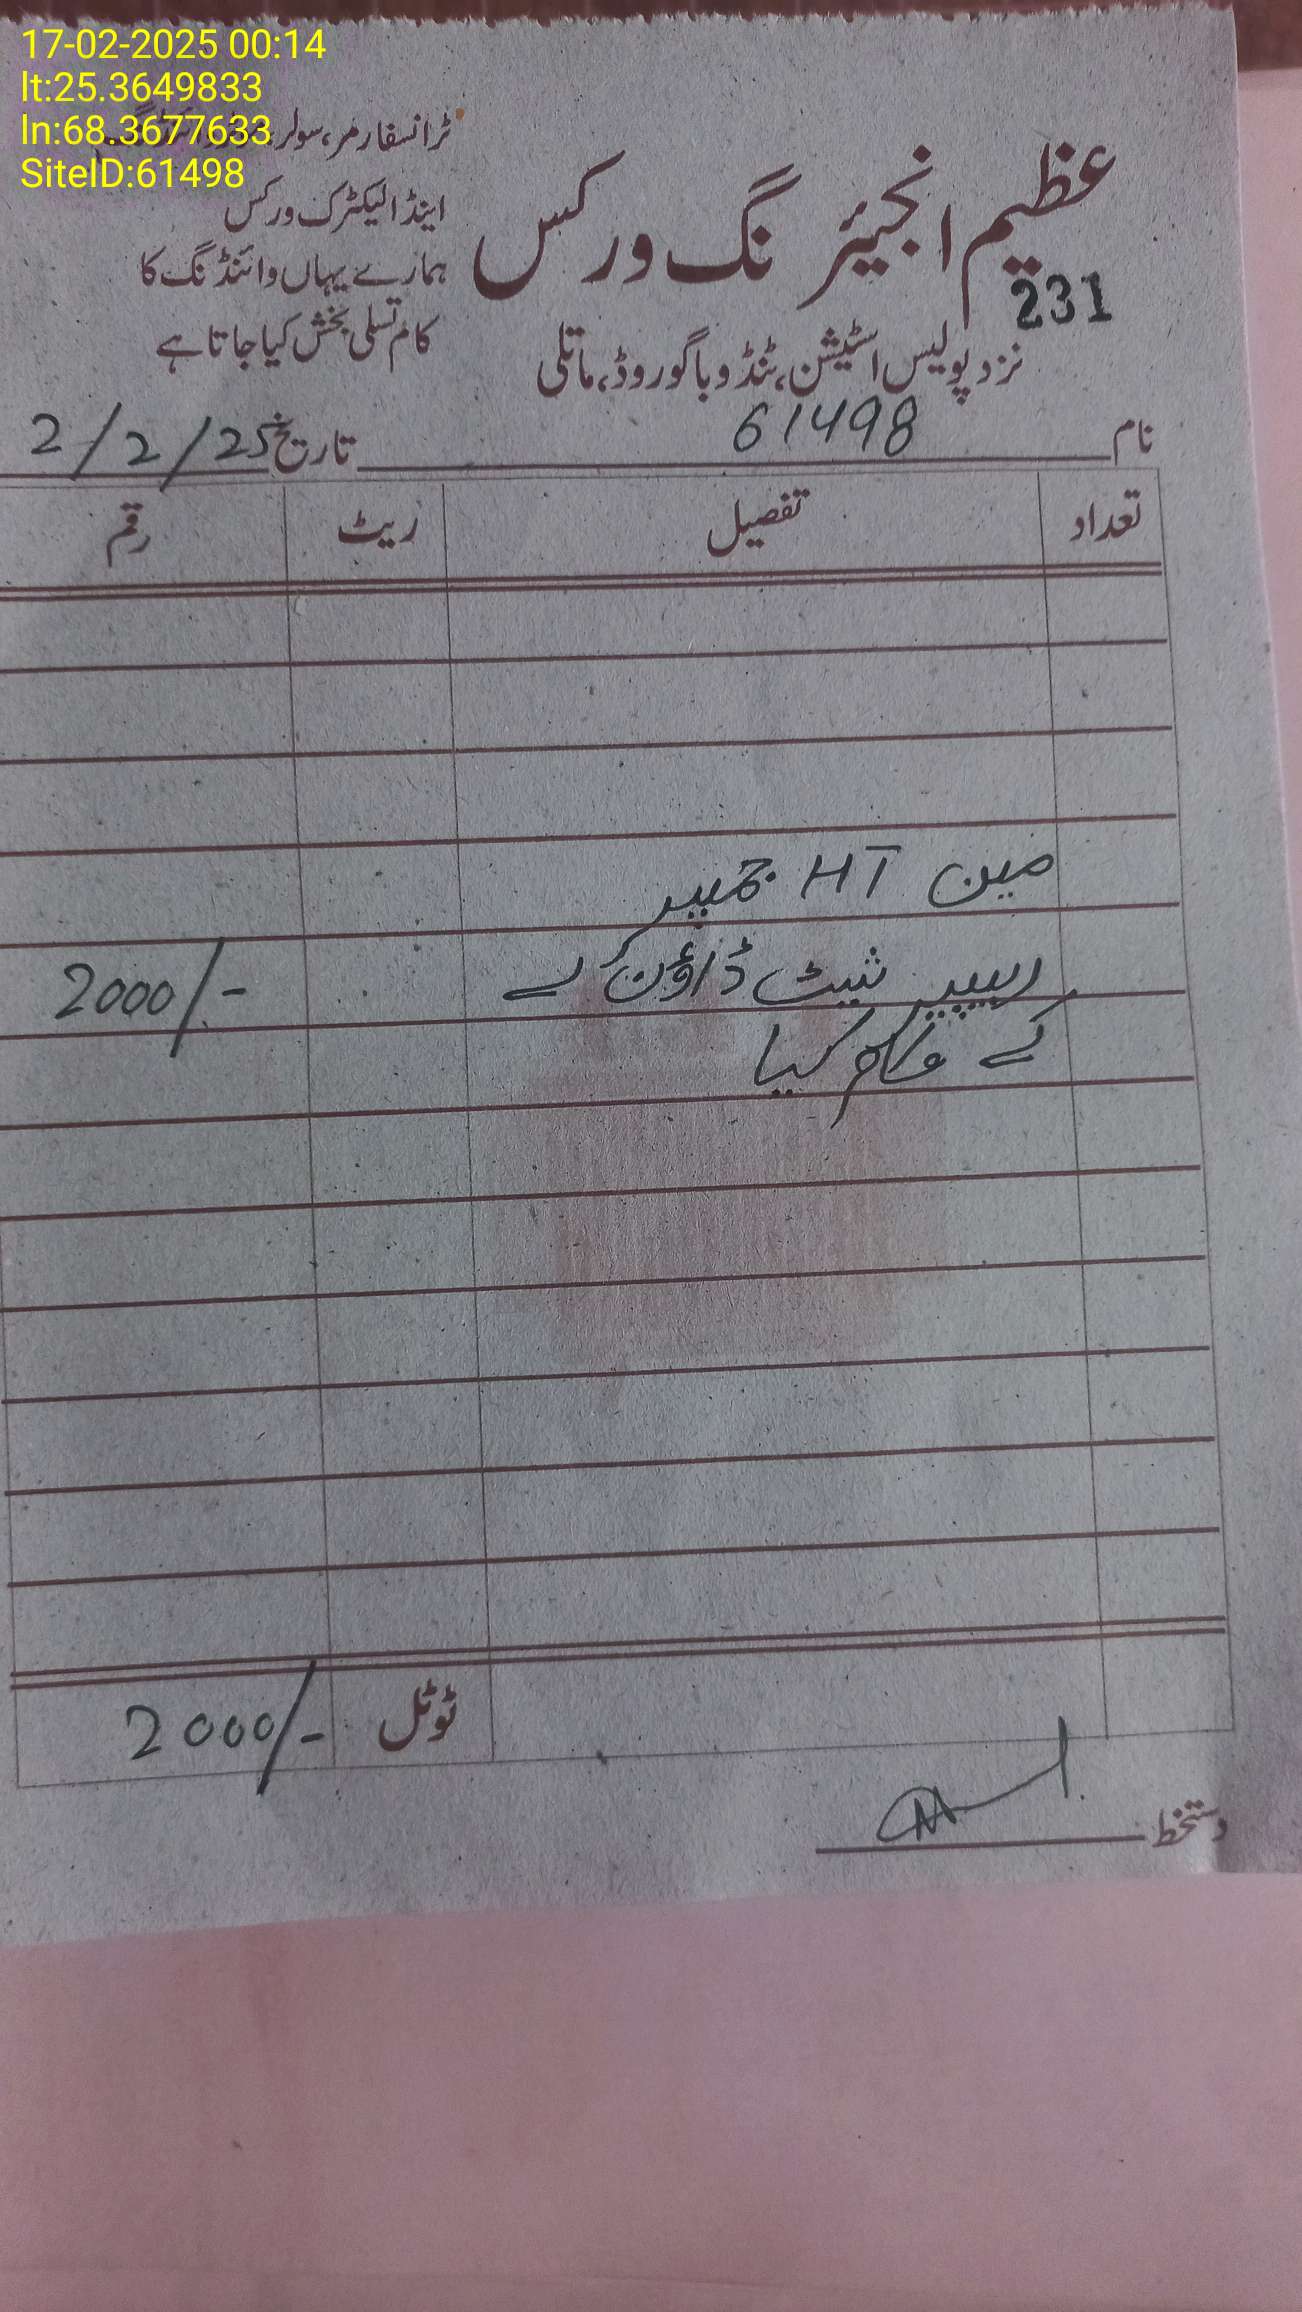 17-02-2025 00:14
lt:25.3649833
ln:68.3677633
SiteID:61498
عظیم انجیئرنگ ورکس
231
نزد پولیس اسٹیشن، ٹنڈو باگو روڈ، ماتلی
ٹرانسفارمر، سولر،
اینڈ الیکٹرک ورکس
ہمارے یہاں وائنڈنگ کا
کام تسلی بخش کیا جاتا ہے
نام 61498 تاریخ 2/2/25
تعداد تفصیل ریٹ رقم
مین HT جمپر
ریپیر شیٹ ڈاؤن لے 2000/-
کے کام کیا
ٹوٹل 2000/-
دستخط